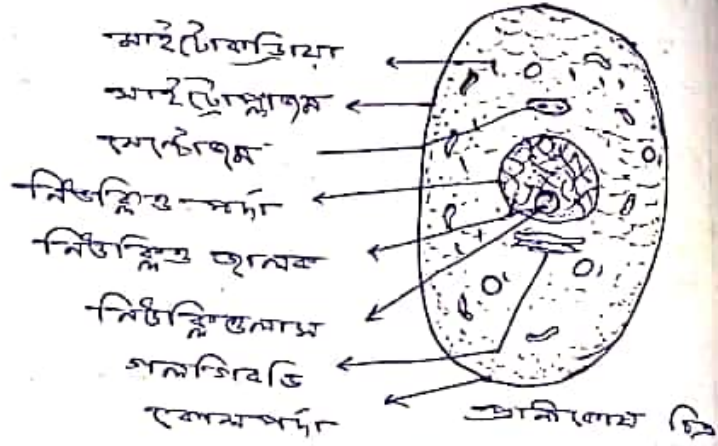 মাইটোকন্ড্রিয়া
সাইট্রোপ্লাজম
সেন্টোজম
নিউক্লিও পর্দা
নিউক্লিও জালক
নিউক্লিওলাস
গলগিবডি
কোষপর্দা
প্রানীকোষ চিত্র